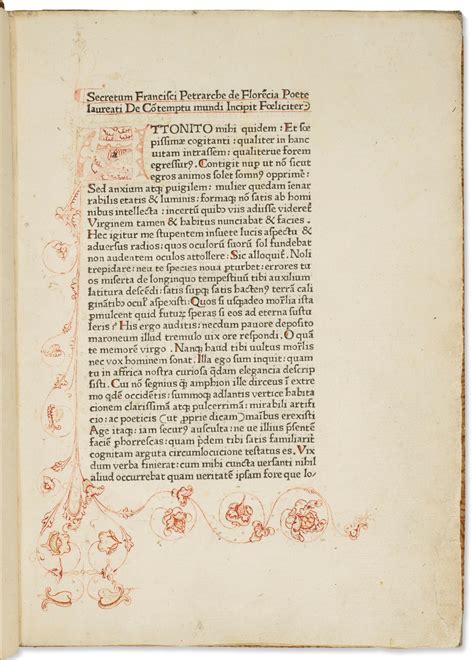 Secretum Francisci Petrarche de Florẽcia Poete
laureati De Cõtemptu mundi Incipit Fœliciter
ATTONITO mihi quidem: Et sœ
pissimæ cogitanti: qualiter in hanc
uitam intrassem: qualiterue forem
egressurꝰ. Contigit nup ut nõ sicut
egros animos solet somnꝰ opprime:
Sed anxium atqꝫ puigilem: mulier quedam ienar
rabilis etatis & luminis: formaqꝫ nõ satis ab homi
nibus intellecta: incertũ quibꝰ viis adiisse videret
Virginem tamen & habitus nunciabat & facies.
Hec igitur me stupentem insuete lucis aspectu &
aduersus radios: quos oculorũ suorũ sol fundebat
non audentem oculos attollere: Sic alloquit. Noli
trepidare: neu te species noua pturbet: errores tu
os miserta de longinquo tempestiuũ tibi auxilium
latitura descẽdi: satis supqꝫ satis hactenꝰ terrã cali
ginãtibꝰ ocul aspexisti: Quos si usqadeo mortalia ista
pmulcent quid futurꝫ speras si eos ad eterna sustu
leris? His ergo auditis: necdum pauore deposito
maroneum illud tremulo uix ore respondi. O quã
te memorẽ virgo. Nanqꝫ haud tibi uultus mortalis
nec vox hominem sonat. Illa ego sum inquit: quam
tu in affrica nostra curiosa qdam elegancia descrip
sisti. Cui nõ segniꝰ qꝫ amphion ille dirceus ĩ extre
mo qdẽ occidẽti: summoqꝫ adlantis vertice habita
cionem clarissimã atqꝫ pulcerrimã: mirabili artifi
cio: ac poeticis (ut pprie dicam) maibus erexisti
Age itaqꝫ: iam securꝰ ausculta: ne ue illius psentẽ
faciẽ phorrescas: quam pdem tibi satis familiarit
cognitam arguta circumlocucione testatus es. Vix
dum verba finierat: cum mihi cuncta versanti nihil
aliud occurrebat quam ueritatẽ ipsam fore que lo-